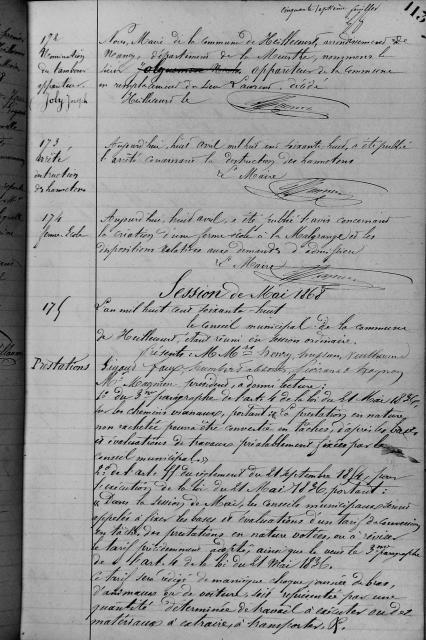 cinquante septième feuillet
113
174
Nomination
du tambour
appariteur
Joly Joseph
Nous, Maire de la commune de Heillecourt, arrondissement de
Nancy, département de la Meurthe, nommons le
sieur appariteur de la commune
en remplacement du sieur Laurent, décédé
Heillecourt le
173
Arrêté
destruction
des hannetons
Aujourd'hui, huit avril mil huit cent soixante-huit, a été publié
l'arrêté concernant la destruction des hannetons
Le Maire
174
ferme-école
Aujourd'hui, huit avril, a été publié l'avis concernant
la création d'une ferme école à la Malgrange et les
dispositions relatives aux demandes d'admission
Le Maire
Session de Mai 1868
175
L'an mil huit cent soixante-huit
le Conseil municipal de la commune
de Heillecourt, étant réuni en session ordinaire.
Prestations
présents M. M.rs Henry,
M. Magnien président, a donné lecture:
1° du 3me paragraphe de l'art. 4 de la loi du 21 Mai 1836,
sur les chemins vicinaux, portant: "La prestation en nature,
non rachetée pourra être convertie en tâches, d'après les bases
et évaluations de travaux préalablement fixées par le
Conseil municipal."
2° de l'art. du règlement du 21 septembre 1854, pour
l'exécution de la loi du 21 Mai 1836, portant:
"Dans la session de Mai, les conseils municipaux seront
appelés à fixer les bases et évaluations d'un tarif de conversion
en tâches, des prestations en nature votées, ou à réviser
le tarif précédemment adopté, ainsi que le veut le 3me paragraphe
de l'art. 4 de la loi du 21 Mai 1836.
Ce tarif sera rédigé de manière que chaque journée de bras,
d'animaux ou de voiture, soit représentée par une
quantité déterminée de travail à exécuter ou de
matériaux à extraire, à transporter,